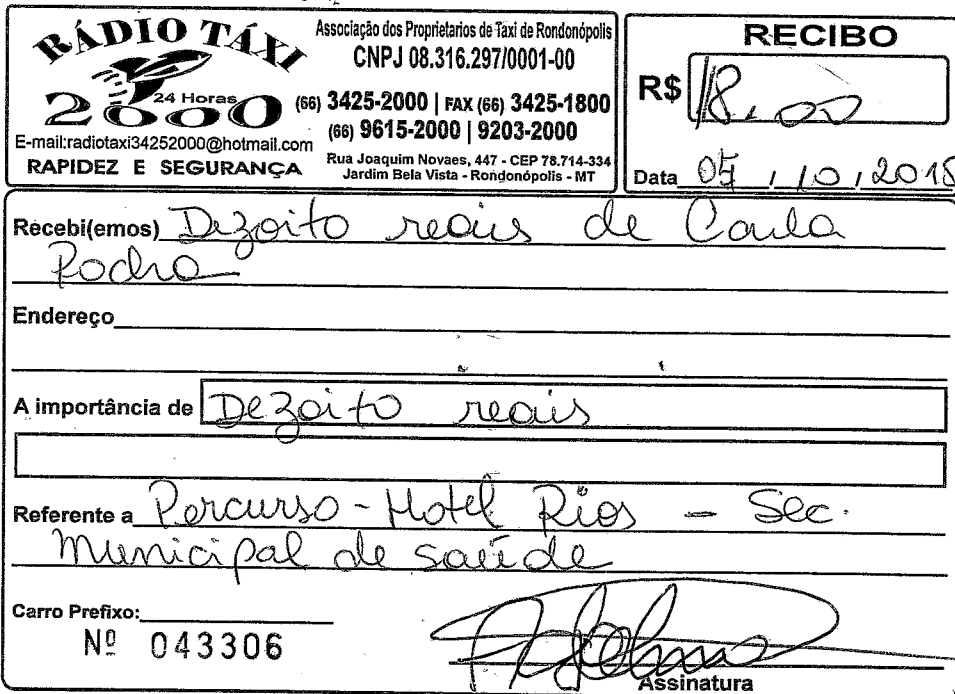 RÁDIO TÁXI
24 Horas
2000
E-mail:radiotaxi34252000@hotmail.com
RAPIDEZ E SEGURANÇA
Associação dos Proprietarios de Táxi de Rondonópolis
CNPJ 08.316.297/0001-00
(66) 3425-2000 | FAX (66) 3425-1800
(66) 9615-2000 | 9203-2000
Rua Joaquim Novaes, 447 - CEP 78.714-334
Jardim Bela Vista - Rondonópolis - MT
RECIBO
R$ 18,00
Data / 10 / 2018
Recebi(emos) Dezoito reais de
Rocha
Endereço
A importância de Dezoito reais
Referente a Percurso - Hotel Rios - Sec.
Municipal de saúde
Carro Prefixo:
Nº 043306
Assinatura